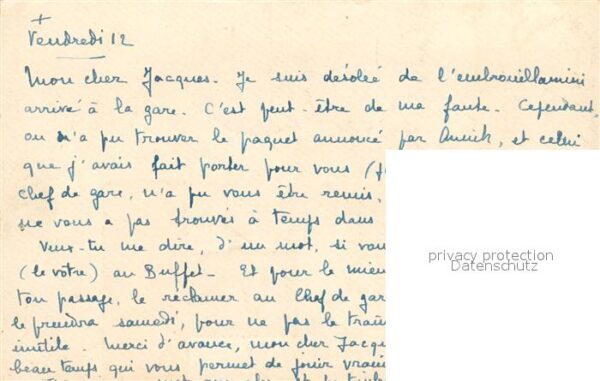 +
Vendredi 12
Mon cher Jacques. Je suis désolée de l'embrouillamini
arrivé à la gare. C'est peut-être de ma faute. Cependant,
on n'a pu trouver le paquet annoncé par Annick, et celui
que j'avais fait porter pour vous
chef de gare, n'a pu vous être remis,
ne vous a pas trouvés à temps dans
Veux-tu me dire, d'un mot, si
(le vôtre) au Buffet. Et pour le
ton passage, le réclamer au Chef de
le prendra samedi, pour ne pas le
inutile. Merci d'avance, mon cher
beau temps qui vous permet de jouir
privacy protection
Datenschutz